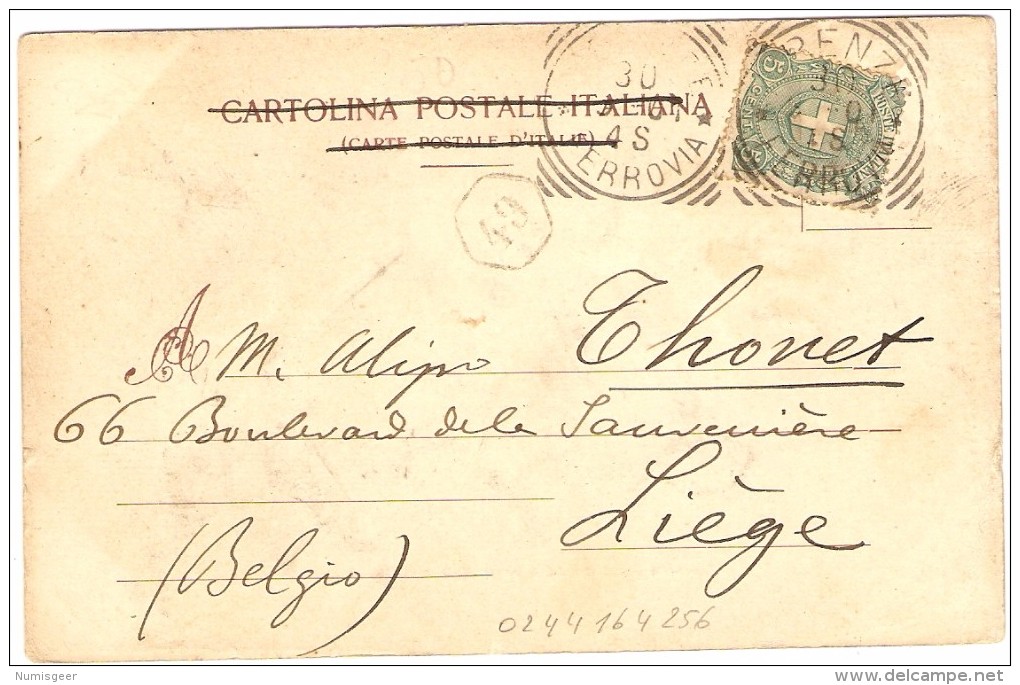 CARTOLINA POSTALE ITALIANA
(CARTE POSTALE D'ITALIE)
30
4S
FERROVIA
RENZE
30
1S
FERRO
5
CENT
POSTE ITALIANE
49
A M. Alipo Thonet
66 Boulevard de la Sauvenière
Liège
(Belgio)
0244164256
Numisgeer
www.delcampe.net